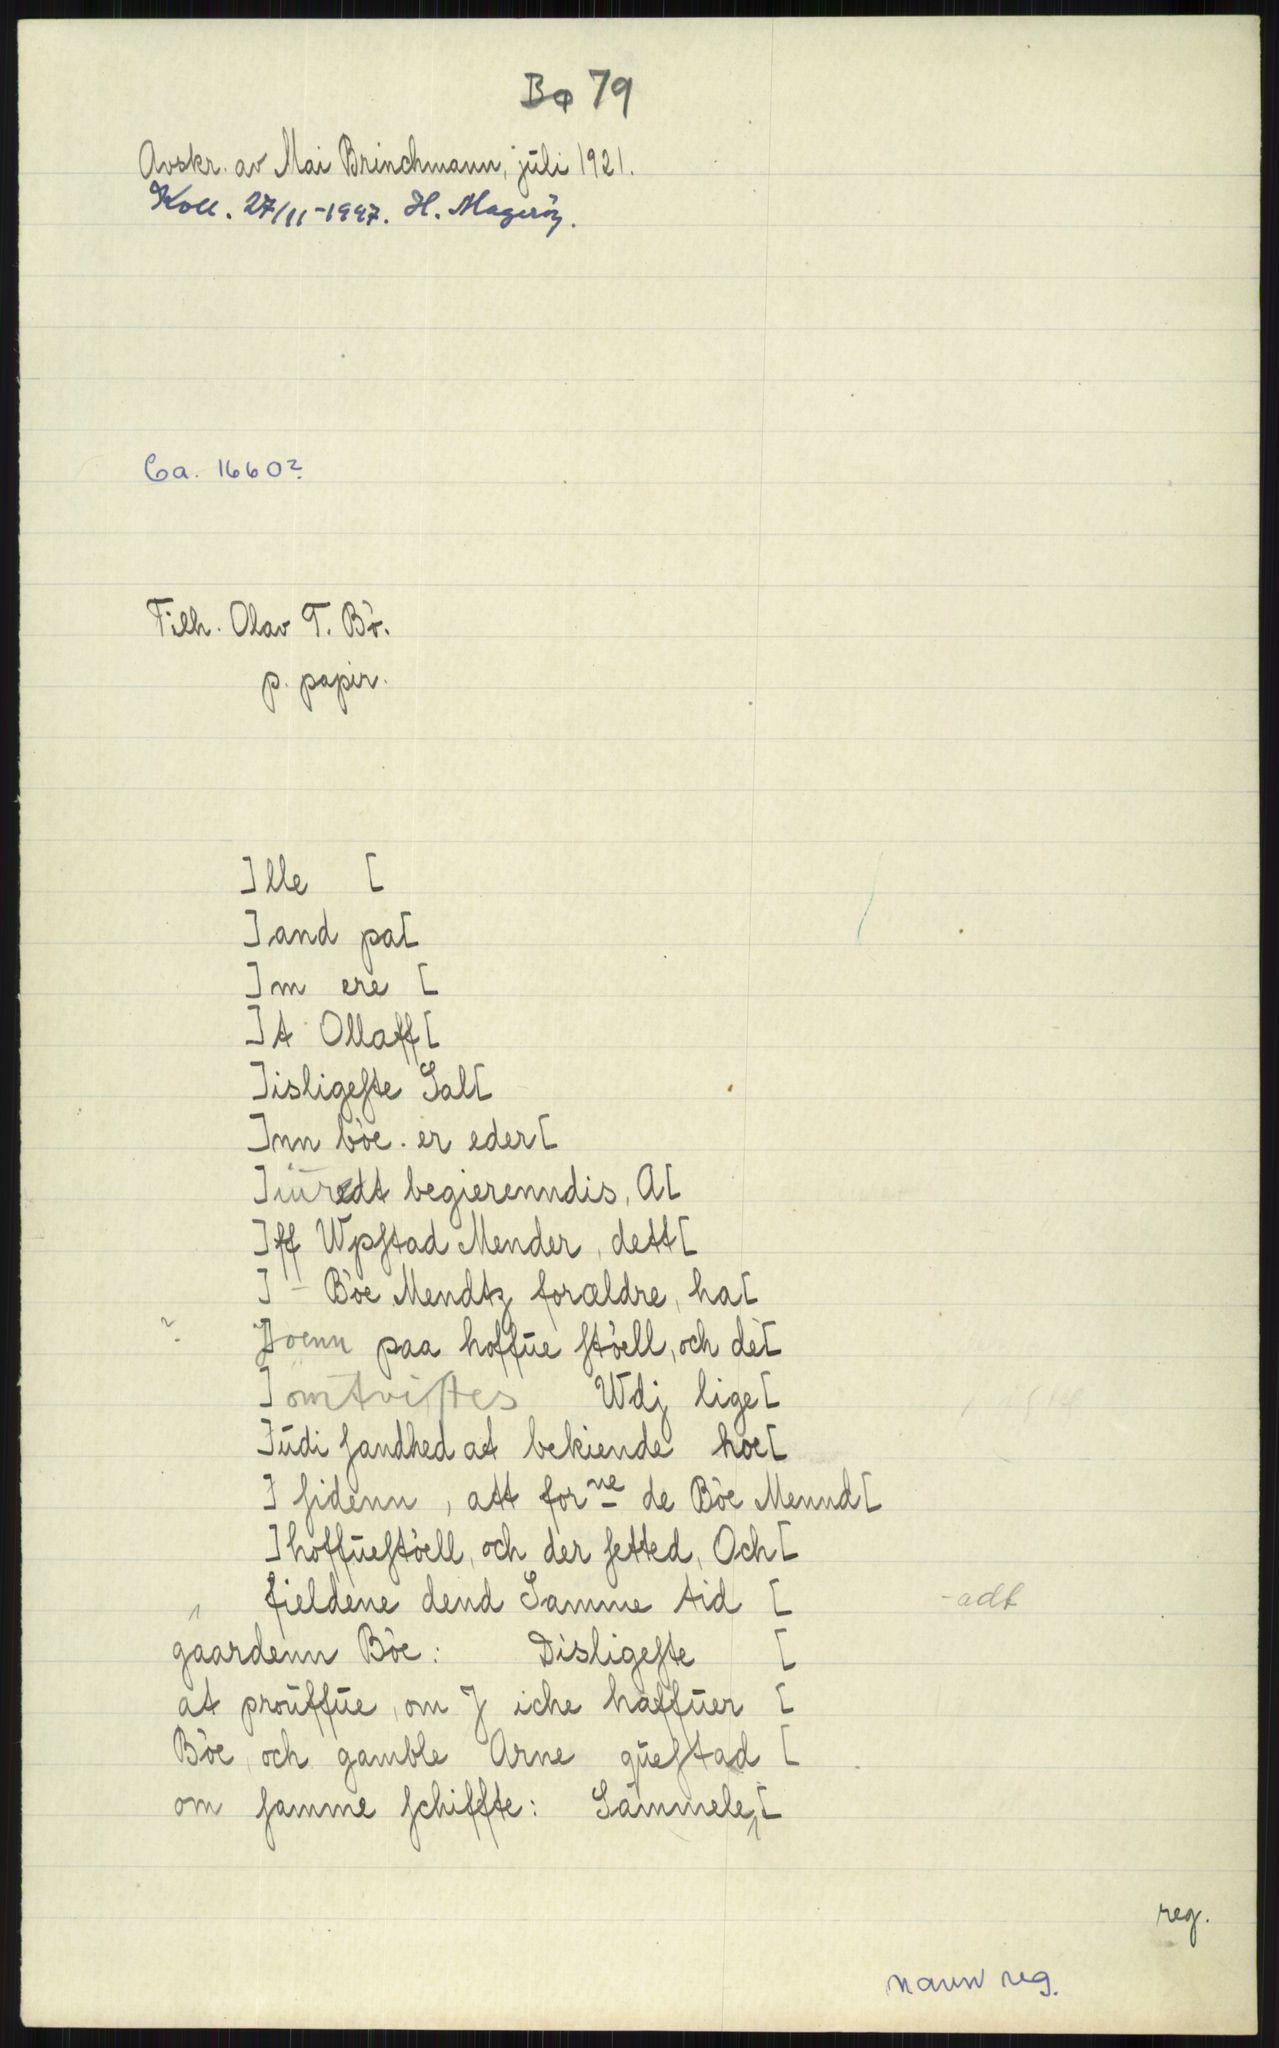 Bø 79
Avskr. av Mai Brinchmann, juli 1921.
Koll. 27/11-1947. H. Magerøy.
Ca. 1660?
Tilh. Olav T. Bö.
p. papir.
] lle [
] and pa[
] m ere [
] t Ollaff[
] isligeſte Sal[
] nn böe. er eder[
] üredt begierenndis, A[
] ff Wpſtad Mender, dett[
] - Böe Mendtz forældre, ha[
? ] oenn paa hoffüe ſtöell, och de[
] omtviſtes Wdj lige[
] üdi ſandhed at bekiende hoe[
] ſidenn, att forne de Böe Mennd[
] hoffüeſtöell, och der ſetted, Och[
fieldene dend Samme tid [ -adt
gaardenn Böe: Disligeſte [
at proüffüe, om J iche haffüer [
Böe, och gamble Arne qüeſtad [
om ſamme ſchiffte: Sammele[
reg.
navn reg.